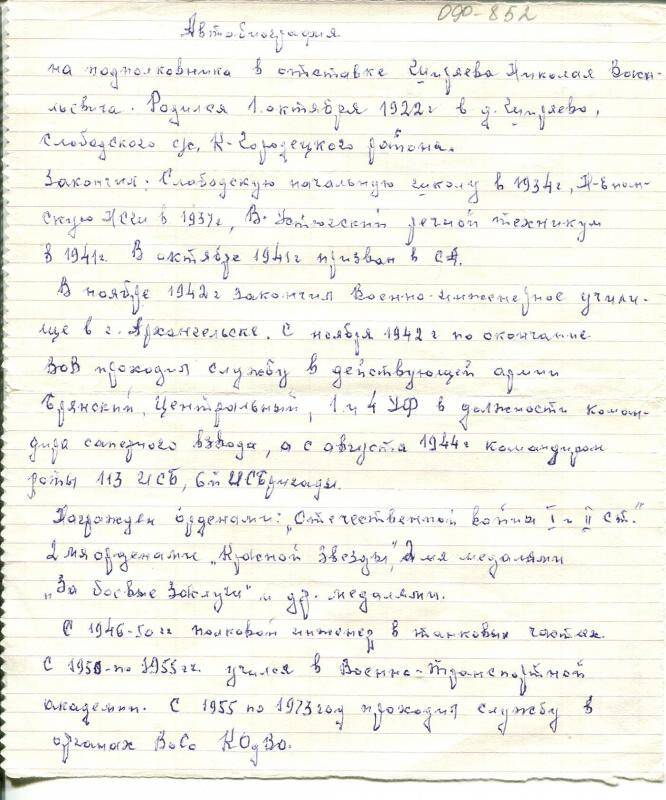 090-852
Автобиография
на подполковника в отставке Чипряева Николая Васи-
льевича. Родился 1 октября 1922 г в д. Чипряево,
Слободского с/с, К-Городецкого района.
Закончил: Слободскую начальную школу в 1934г,
скую НСШ в 1937г, В-Устюгский речной техникум
в 1941г. В октябре 1941г призван в СА.
В ноябре 1942г закончил Военно-инженерное учили-
ще в г. Архангельске. С ноября 1942 г по окончание
ВОВ проходил службу в действующей армии
Брянский, Центральный, 1 и 4 УФ в должности коман-
дира саперного взвода, а с августа 1944г командиром
роты 113 ИСБ, 6й ИСБригады.
Награжден орденами: „Отечественной войны I и II ст."
2 мя орденами „Красной Звезды", 2 мя медалями
„За боевые Заслуги" и др. медалями.
С 1946-50 гг полковой инженер в танковых частях.
С 1950 по 1955 гг. учился в Военно-Транспортной
академии. С 1955 по 1973 год проходил службу в
органах ВоСо КОдВО.